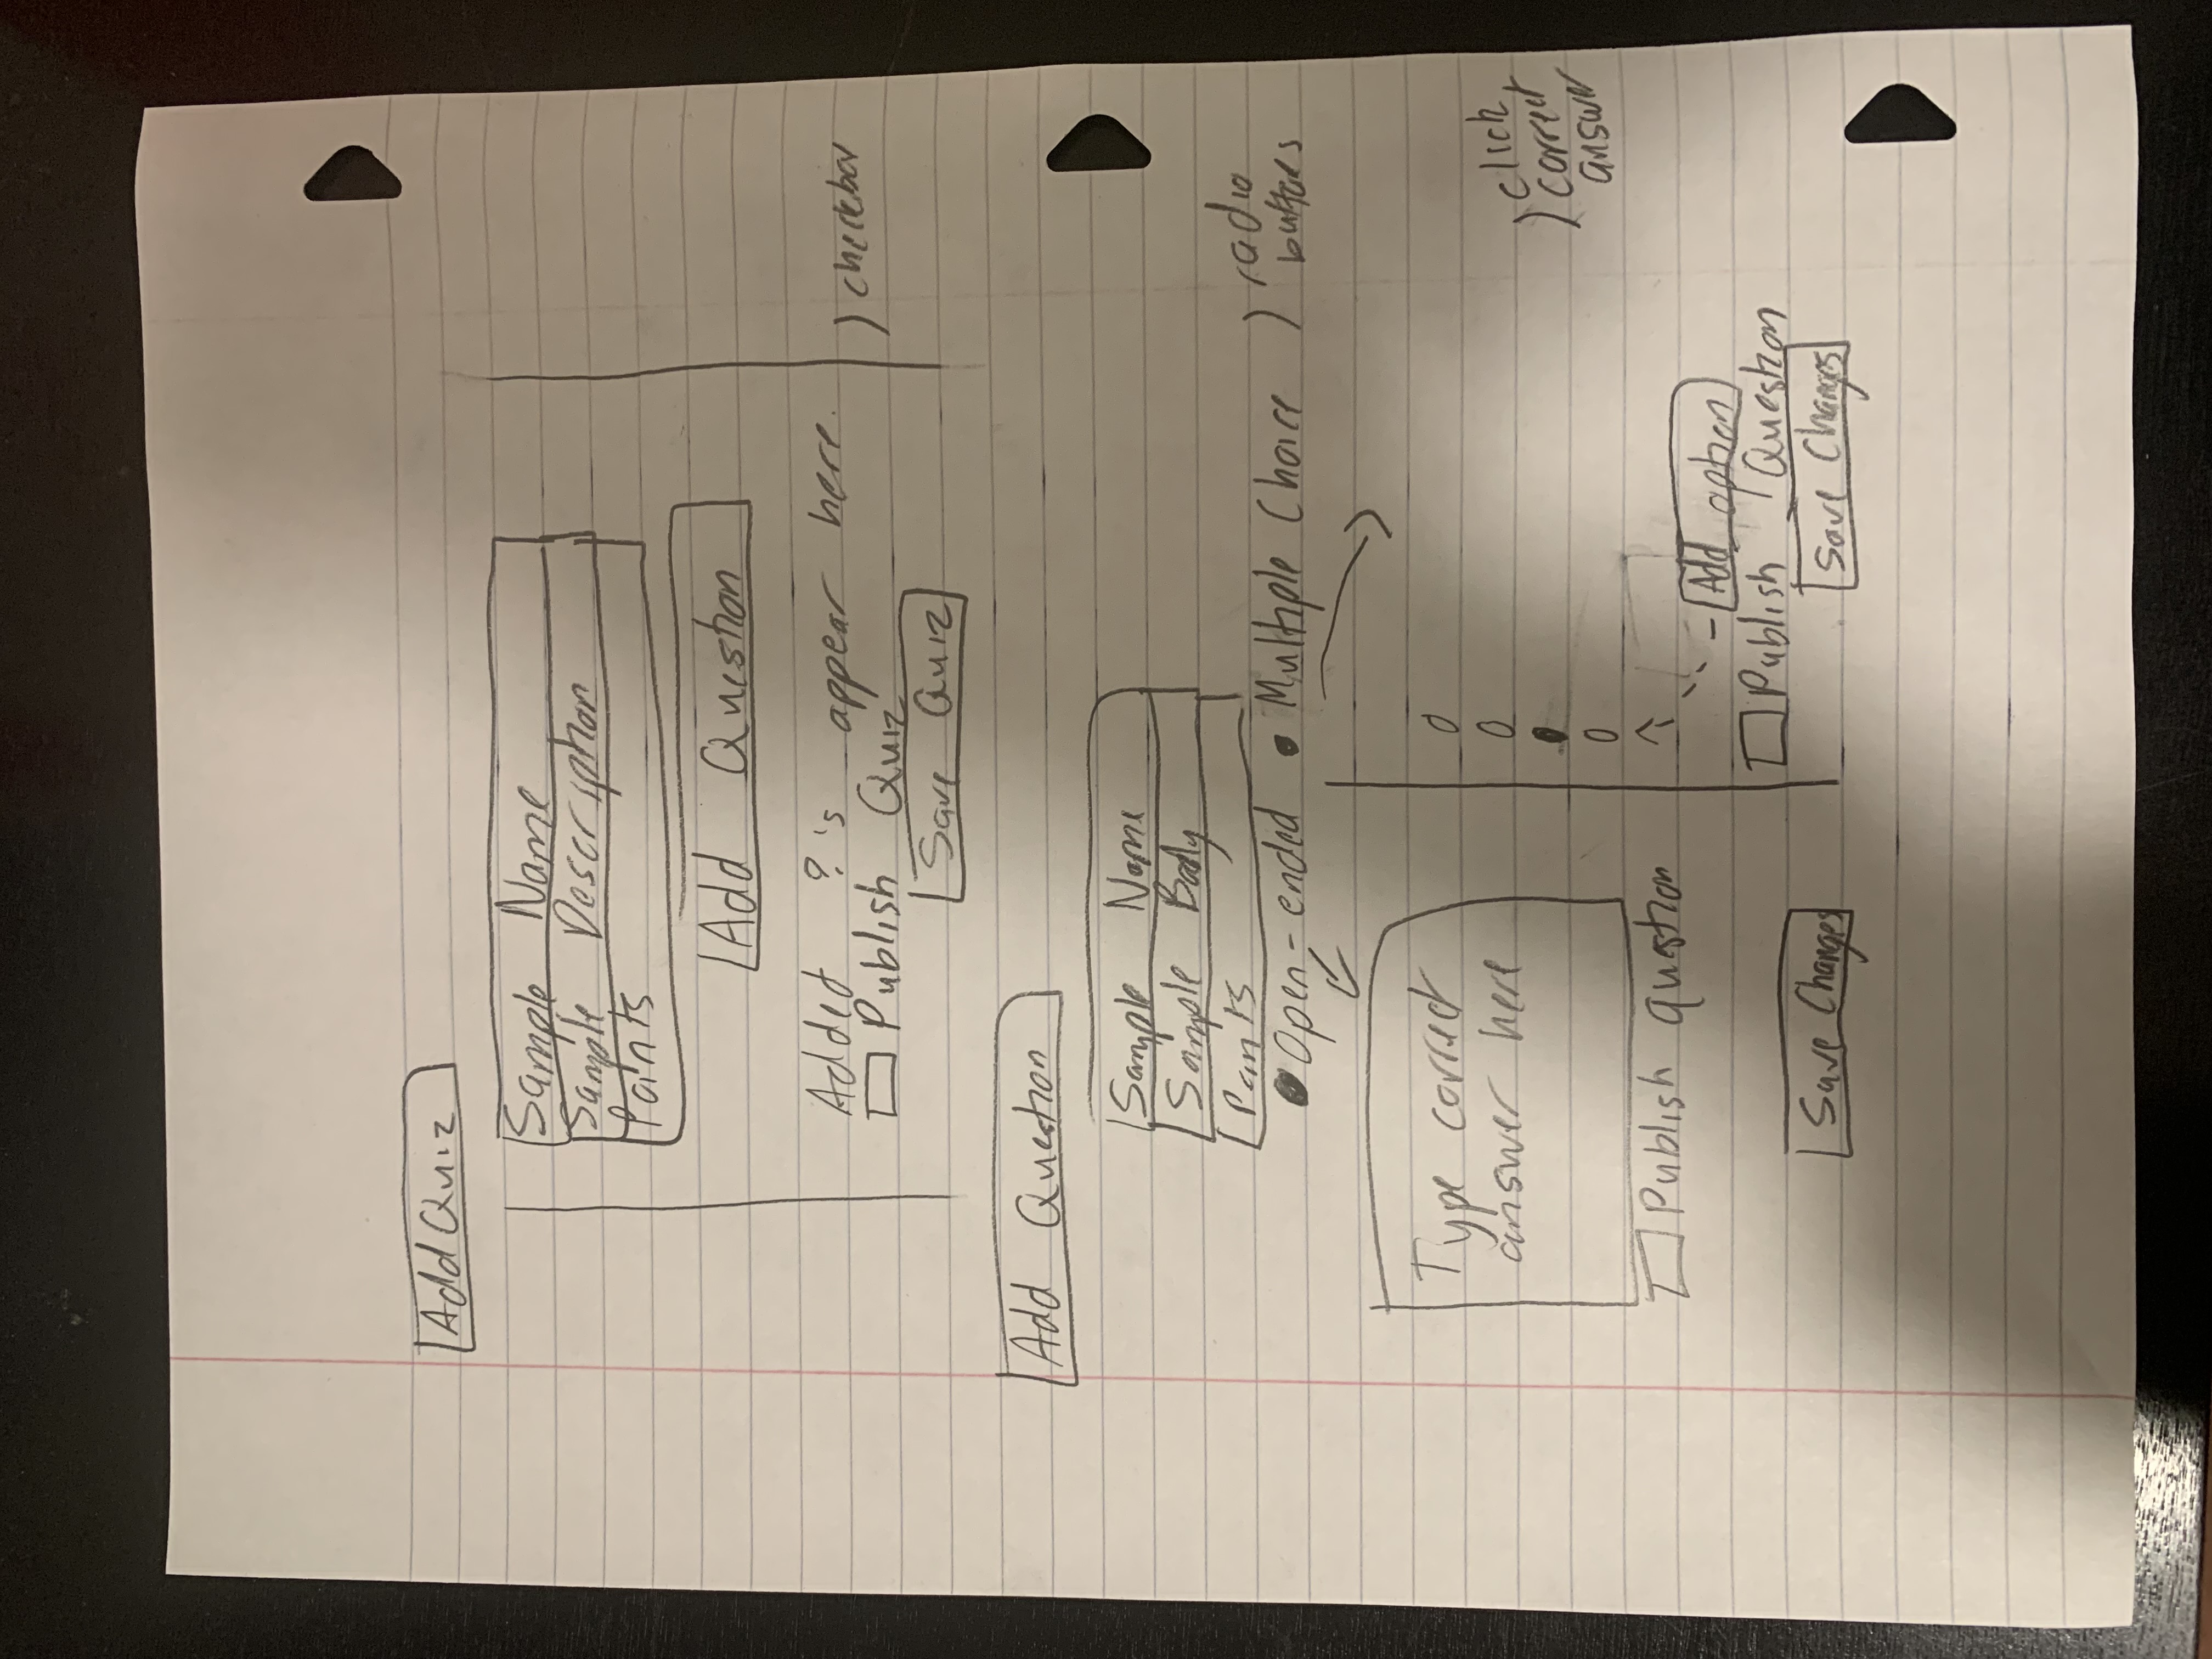 Add Quiz
Sample Name
Sample Description
Points
Add Question
Added ?'s appear here.
Publish Quiz
) checkbox
Save Quiz
Add Question
Sample Name
Sample Body
Points
Open-ended
Multiple Choice
) radio
buttons
Type correct
answer here
) click
correct
answer
Publish question
Add option
Publish Question
Save Changes
Save Changes